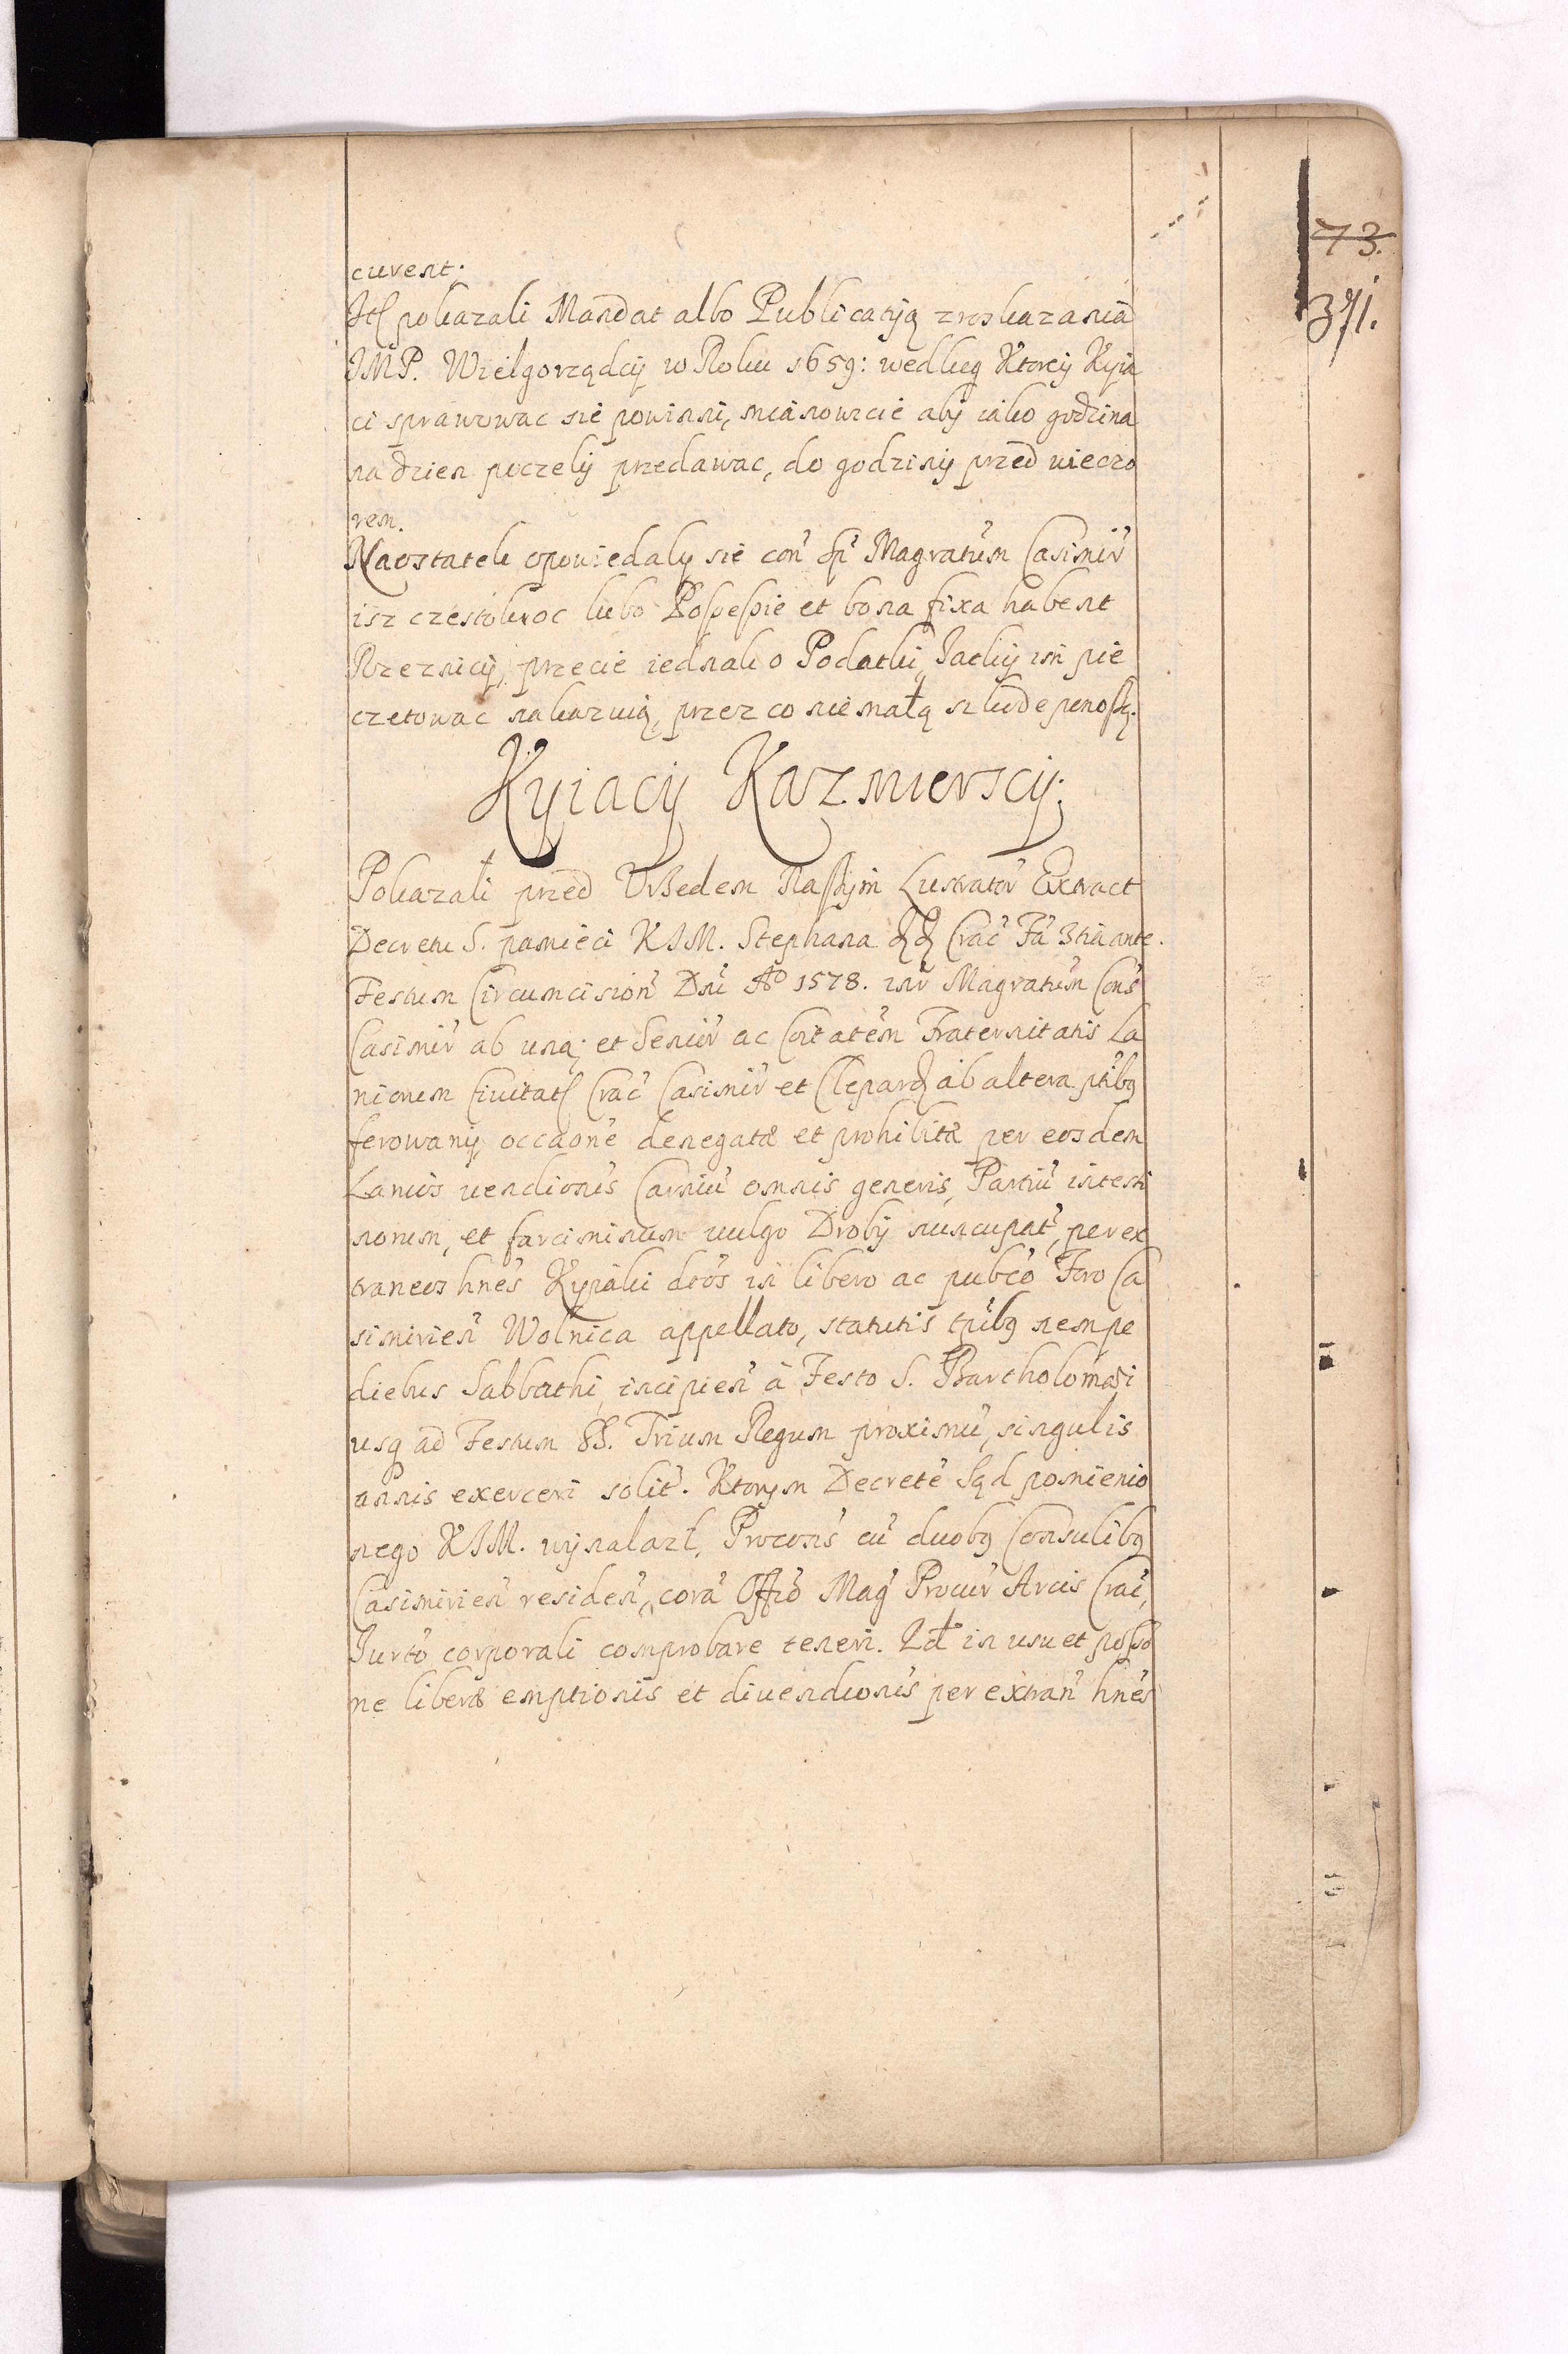 73.
371.
curent.
Itẽ pokazali Mandat albo Publicatyą z roskazania
JMP. Wielgorządcy w Roku 1659: wedlug Ktorey Kyia
ci sprawowac sie powinni, mianowicie aby iako godzina
na dzien poczely przedawac, do godziny przed wieczo
rem.
Naostatek opowiedaly sie con Magratum Casimir
isz czestokroc lubo Possessie et bona fixa habent
Rzeznicy, przecie iednak o Podatki, Jatky im pie
czetowac nakazuią, przez co niemałą szkode ponoszą.
Kyiacy Kazmierscy.
Pokazali przed Vrzedem Naszym Lustrator Extract
Decretu S. pamieci KJM. Stephana Crac Fa 3tia ante
Festum Circumcision Dni Ao 1578. inr Magratum Cons
Casimir ab una; et Senior ac Coitatem Fraternitatis La
niorum Ciuitatĩ Crac Casimir et Clepard ab altera ptibg
ferowany occaone denegatæ et prohibitæ per eosdem
Lanios vendionis Carniu omnis generis, Partiu intesti
norum, et farciminum vulgo Droby nuncupat, per ex
traneos hnes Kyiaki dtos in libero ac pubco Foro Ca
simirien Wolnica appellato, statutis tribg nempe
diebus Sabbathi, incipien à Festo S. Bartholomæi
usq ad Festum SS. Trium Regum proximu, singulis
annis exerceri solit. Ktorym Decrete Sąd pomienio
nego KJM. wynalazł, Procons cu duobg Consulibg
Casimirien residen, cora Offio Mag Procur Arcis Crac,
Jurto corporali comprobare teneri. Id in usu et posso
ne liberæ emptionis et divendionis per extran hnes